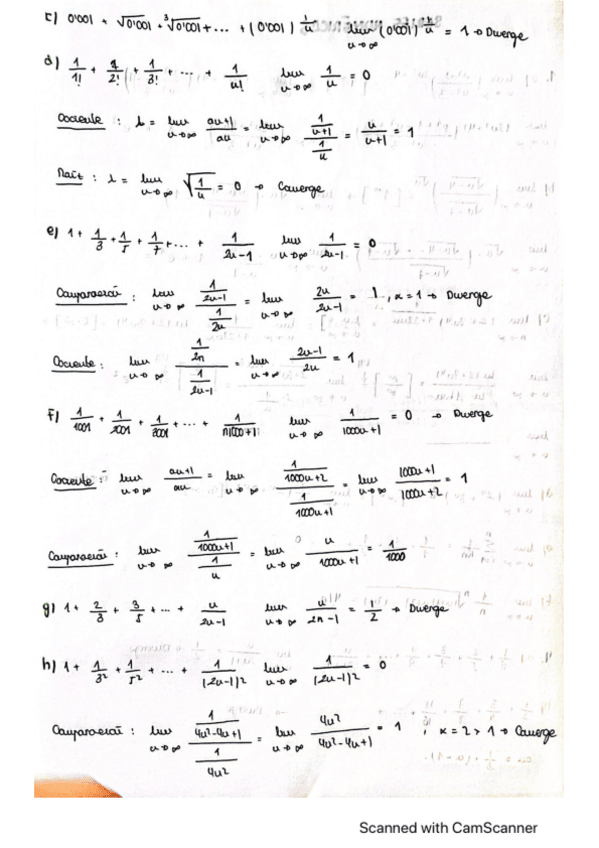 c) 0'001 + √0'001 + ∛0'001 + ... + (0'001)^(1/n) lim n→∞ (0'001)^(1/n) = 1 → Diverge
d) 1/1! + 1/2! + 1/3! + ... + 1/n! lim n→∞ 1/n = 0
Cociente : L = lim n→∞ an+1/an = lim n→∞ (1/(n+1))/(1/n) = n/(n+1) = 1
Raíz : L = lim n→∞ √(1/n) = 0 → Converge
e) 1 + 1/3 + 1/5 + 1/7 + ... + 1/(2n-1) lim n→∞ 1/(2n-1) = 0
Comparación : lim n→∞ (1/(2n-1))/(1/2n) = lim n→∞ 2n/(2n-1) = 1, α = 1 → Diverge
Cociente : lim n→∞ (1/2n)/(1/(2n-1)) = lim n→∞ (2n-1)/2n = 1
f) 1/1001 + 1/2001 + 1/3001 + ... + lim n→∞ 1/(1000n+1) = 0 → Diverge
Cociente : lim n→∞ an+1/an = lim n→∞ (1/(1000n+2))/(1/(1000n+1)) = lim n→∞ (1000n+1)/(1000n+2) = 1
Comparación : lim n→∞ (1/(1000n+1))/(1/n) = lim n→∞ n/(1000n+1) = 1/1000
g) 1 + 2/3 + 3/5 + ... + n/(2n-1) lim n→∞ n/(2n-1) = 1/2 → Diverge
h) 1 + 1/3² + 1/5² + ... + 1/(2n-1)² lim n→∞ 1/(2n-1)² = 0
Comparación : lim n→∞ (1/(4n²-4n+1))/(1/4n²) = lim n→∞ 4n²/(4n²-4n+1) = 1 ; α = 2 > 1 → Converge
Scanned with CamScanner